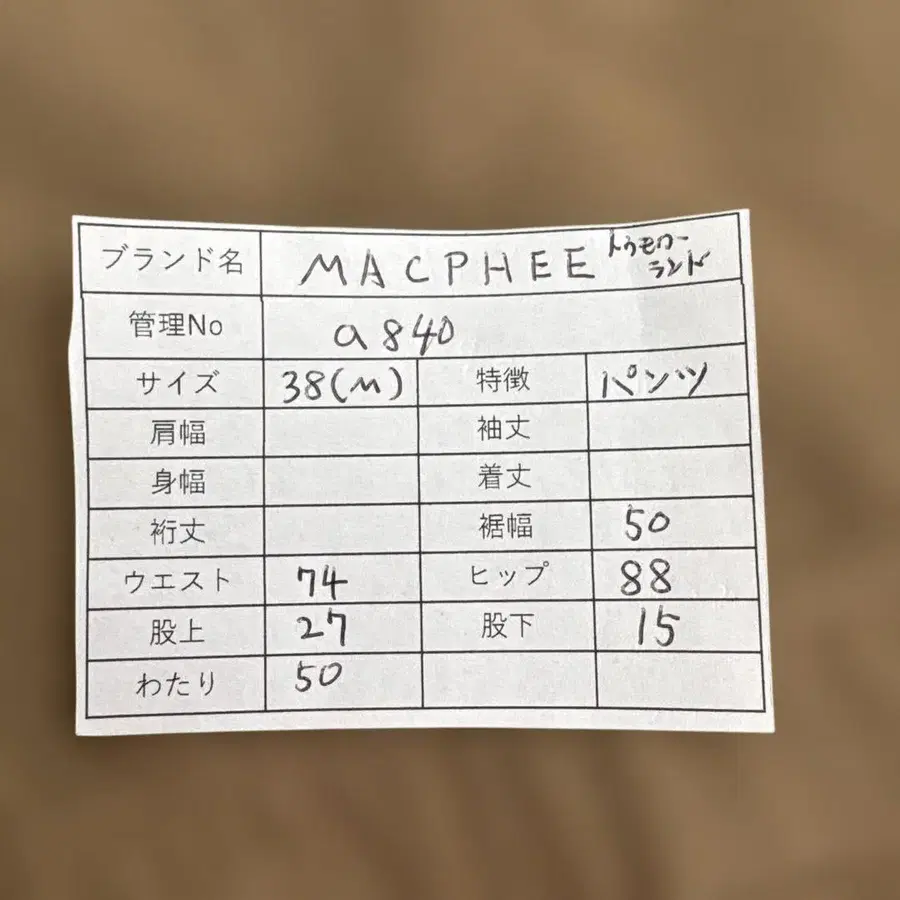 ブランド名 MACPHEE トゥモロー
ランド
管理No a840
サイズ 38(M) 特徴 パンツ
肩幅 袖丈
身幅 着丈
裄丈 裾幅 50
ウエスト 74 ヒップ 88
股上 27 股下 15
わたり 50